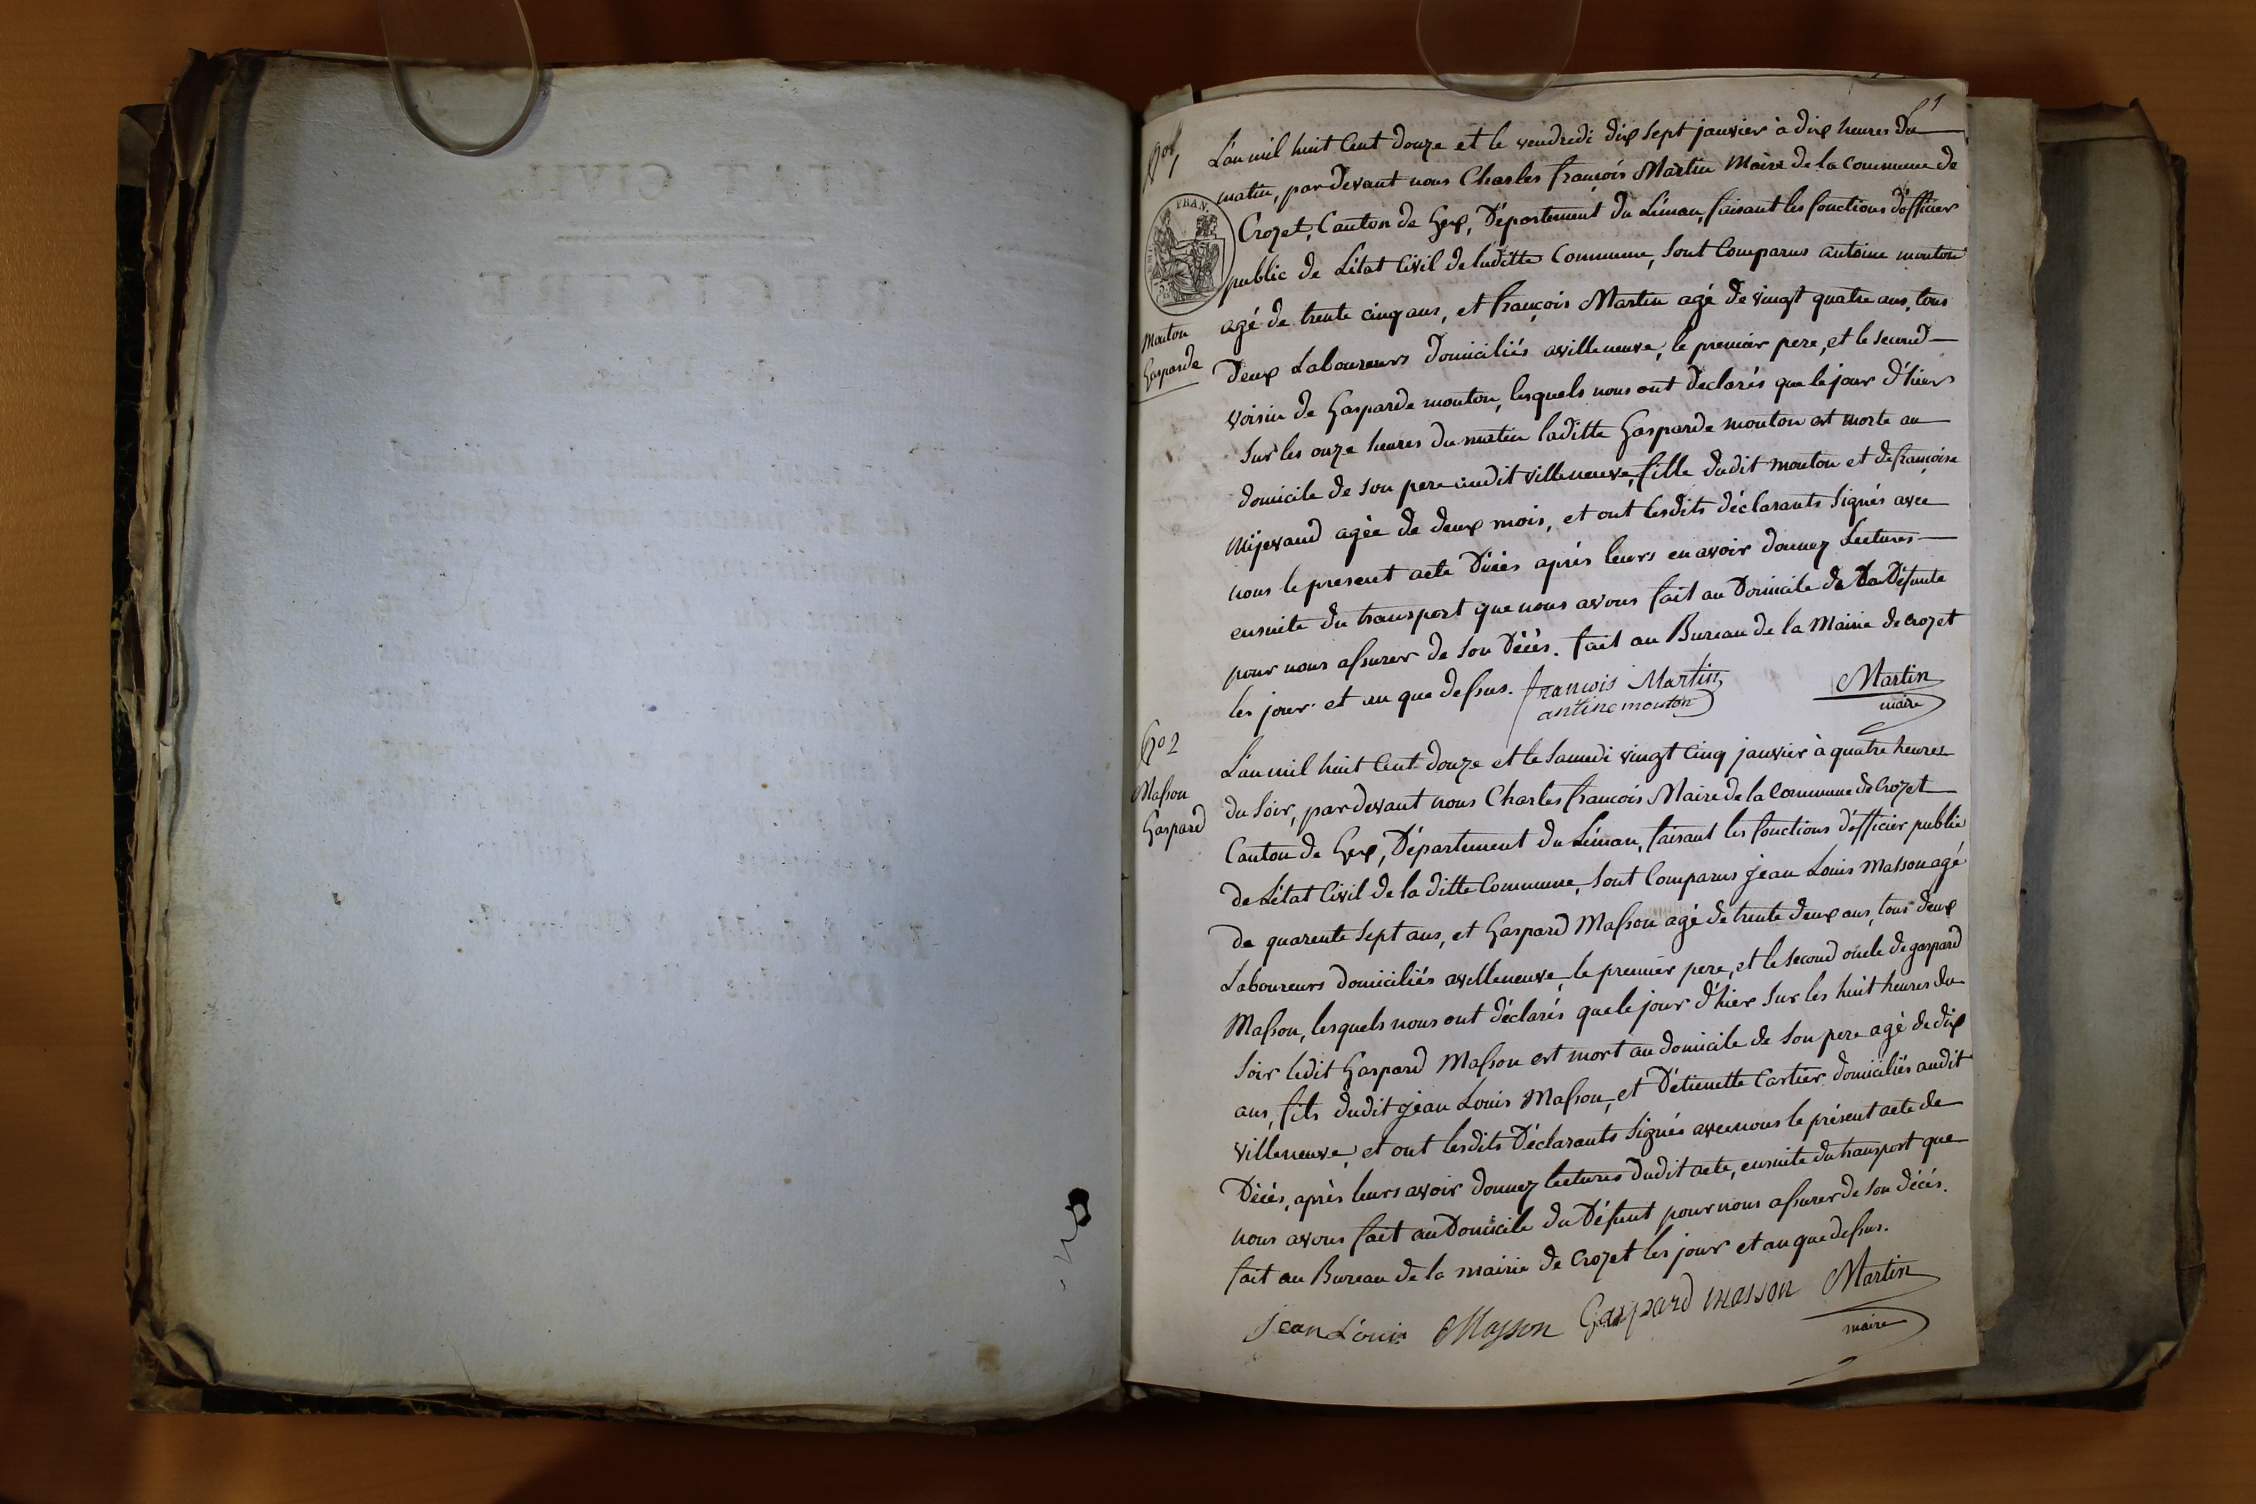 51
No 1
L'an mil huit Cent douze et le vendredi dix sept janvier à dix heures du
matin, par devant nous Charles françois Martin Maire de la Commune de
Crozet, Canton de Gex, Département du Léman, faisant les fonctions d'officier
public de L'état Civil de laditte Commune, sont Comparus antoine mouton
FRAN.
Mouton
Gasparde
agé de trente cinq ans, et françois Martin agé de vingt quatre ans, tous
deux Laboureurs domiciliés a villeneuve, le premier pere, et le second
voisin de Gasparde mouton, lesquels nous ont declarés que le jour d'hier
sur les onze heures du matin laditte Gasparde mouton est morte au
domicile de son pere audit villeneuve, fille dudit mouton et de françoise
Mijevand agée de deux mois, et ont lesdits déclarants signés avec
nous le present acte Décès aprés leurs en avoir donnez Lectures
ensuite du transport que nous avons fait au Domicile de La Défunte
pour nous assurer de son Décès. fait au Bureau de la Mairie de crozet
les jour et an que dessus. francois Martin
antine mouton
Martin
maire
No 2
Masson
Gaspard
L'an mil huit Cent douze et le samedi vingt Cinq janvier à quatre heures
du soir, par devant nous Charles francois Maire de la Commune de Crozet
Canton de Gex, Département du Léman, faisant les fonctions d'officier public
de L'état Civil de la ditte Commune, sont Comparus jean Louis Masson agé
de quarente sept ans, et Gaspard Masson agé de trente deux ans, tous deux
Laboureurs domiciliés a villeneuve, le premier pere, et le second oncle de gaspard
Masson, lesquels nous ont déclarés que le jour d'hier sur les huit heures du
soir ledit Gaspard Masson est mort au domicile de son pere agé de dix
ans, fils dudit jean Louis Masson, et D'étienette Cartier domiciliés audit
villeneuve, et ont lesdits Déclarants signés avec nous le présent acte de
Décès, après leurs avoir donnez lectures dudit acte, ensuite du transport que
nous avons fait au Domicile du Défunt pour nous assurer de son décès.
fait au Bureau de la mairie de Crozet les jour et an que dessus.
jean Louis Masson Gaspard masson Martin
maire